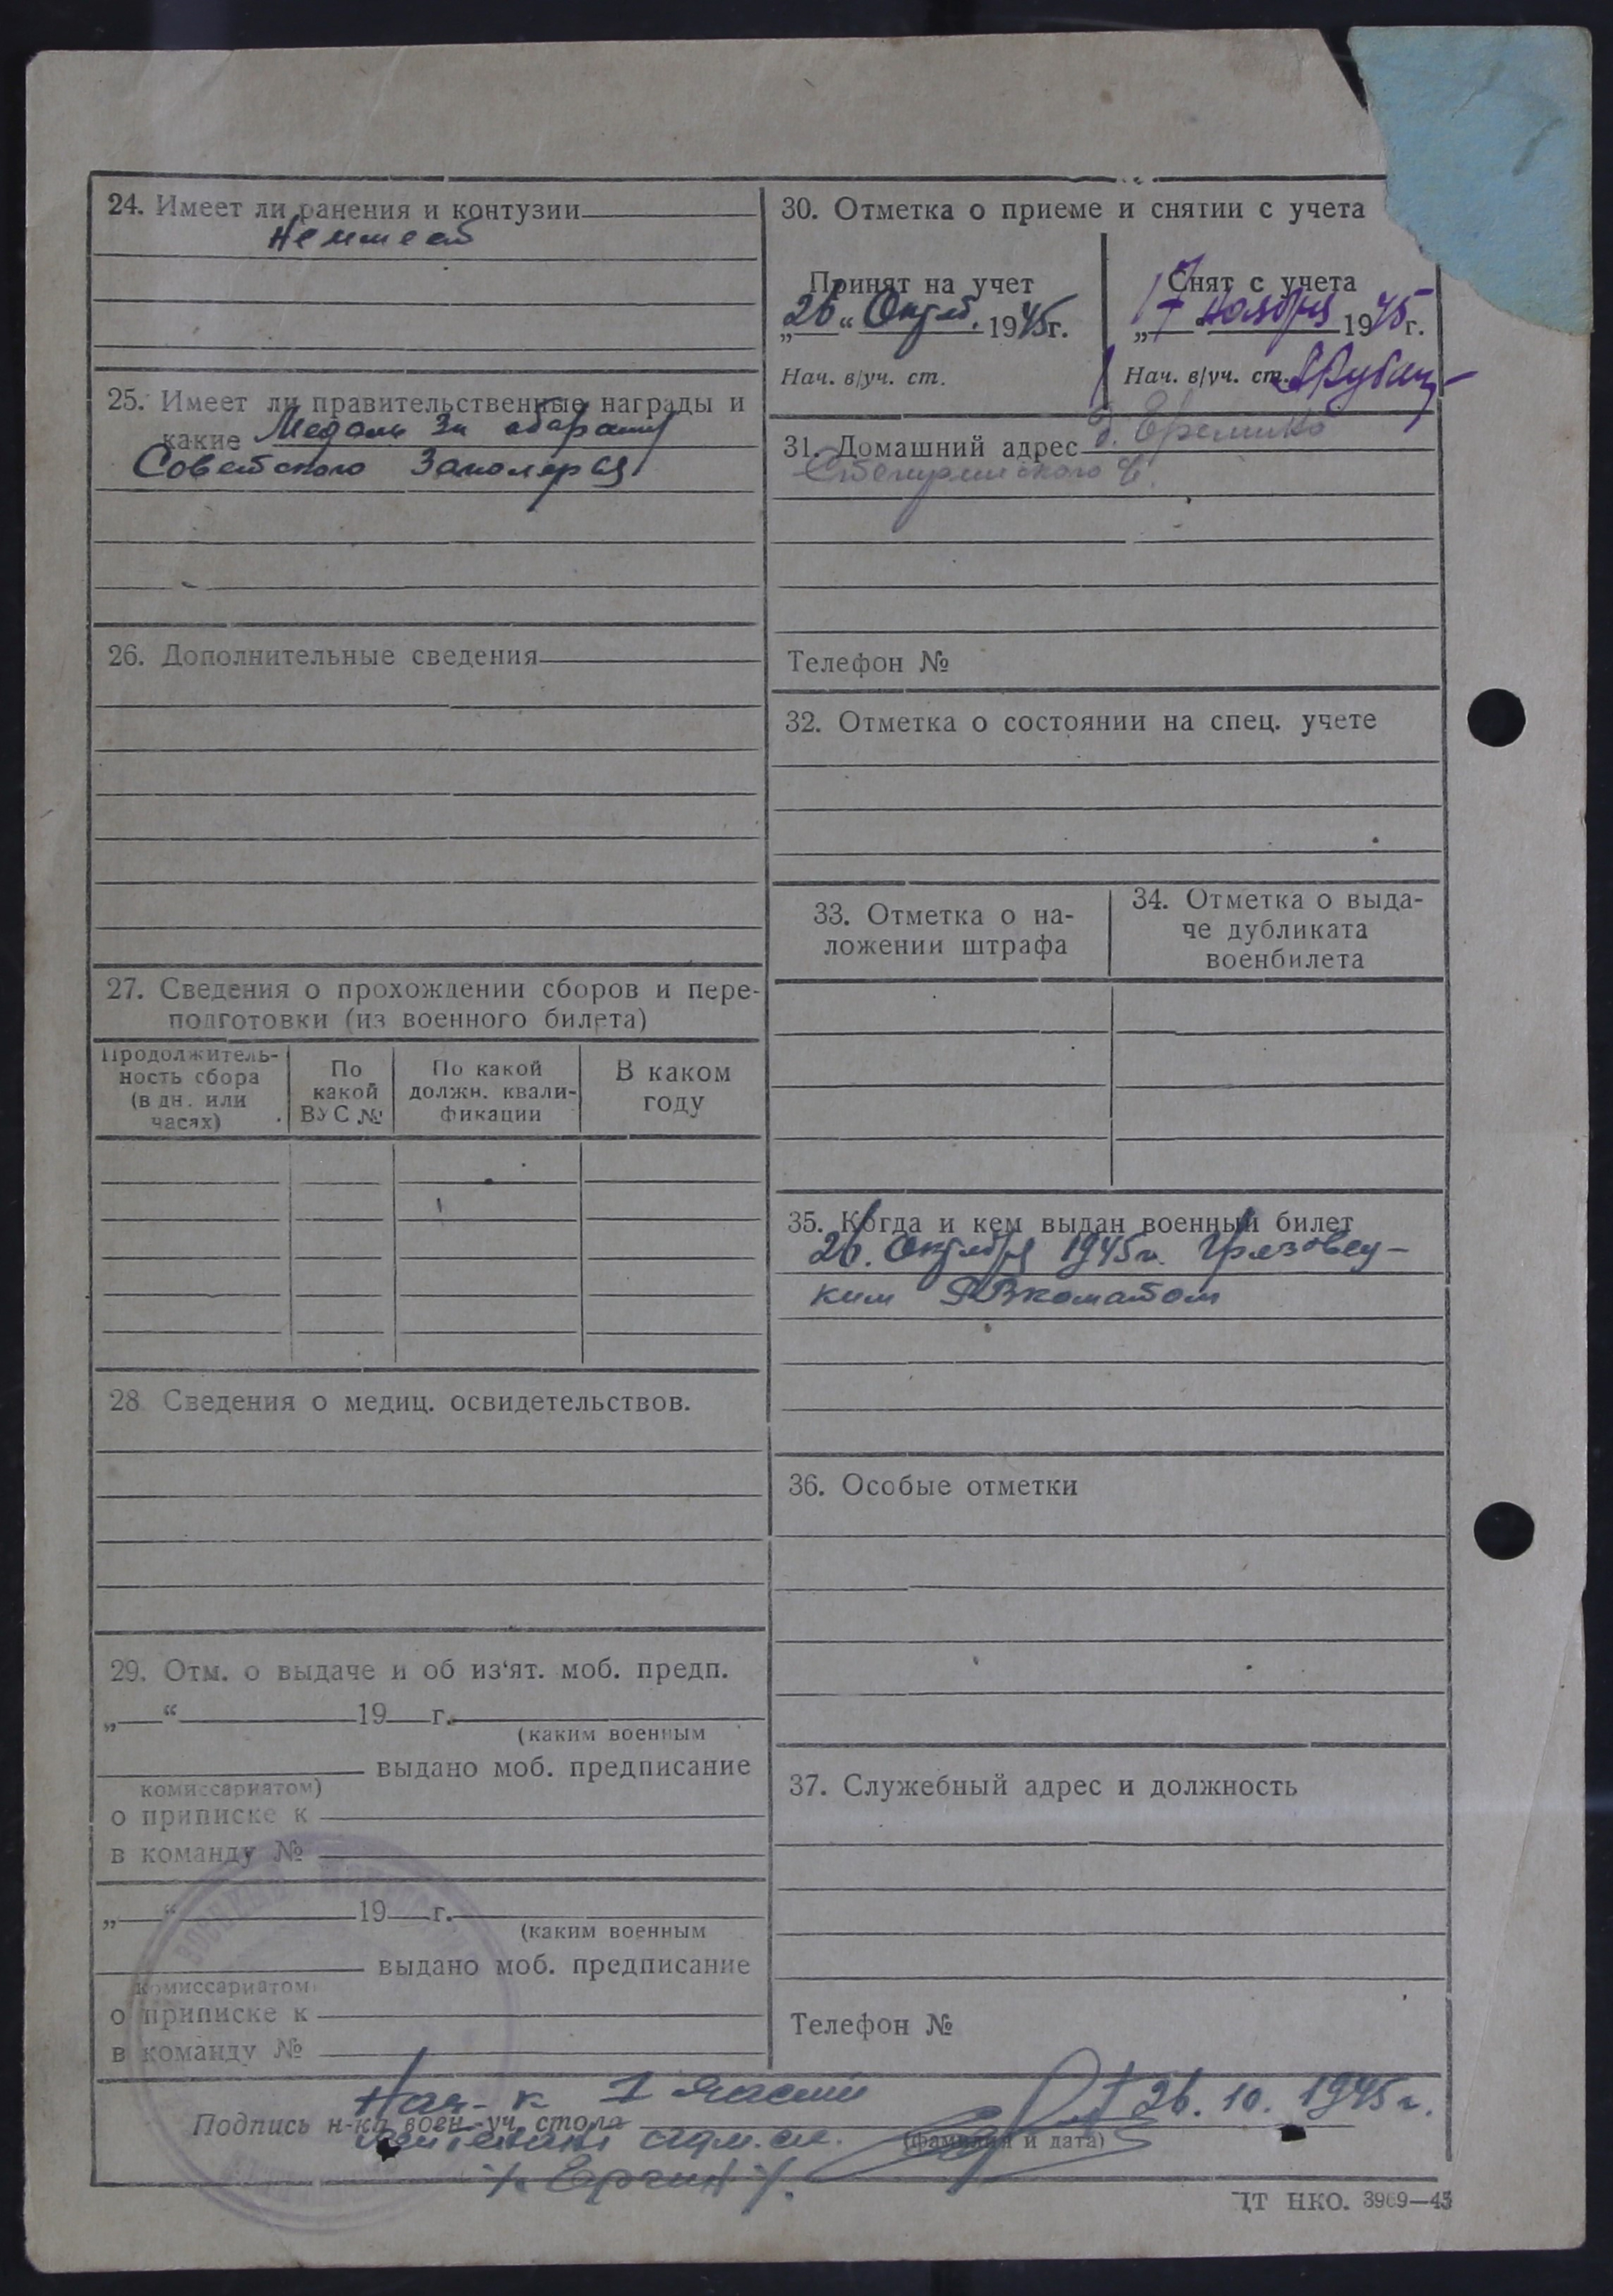 24. Имеет ли ранения и контузии
Не имеет
25. Имеет ли правительственные награды и
какие Медаль За оборону
Советского Заполярья
26. Дополнительные сведения
27. Сведения о прохождении сборов и пере-
подготовки (из военного билета)
Продолжитель-
ность сбора
(в дн. или
часах)
По
какой
ВУС №
По какой
должн. квали-
фикации
В каком
году
28 Сведения о медиц. освидетельствов.
29. Отм. о выдаче и об из‘ят. моб. предп.
„ “ 19 г.
(каким военным
выдано моб. предписание
комиссариатом)
о приписке к
в команду №
„ “ 19 г.
(каким военным
выдано моб. предписание
комиссариатом
о приписке к
в команду №
30. Отметка о приеме и снятии с учета
Принят на учет
„26“ Октяб. 1945г.
Нач. в/уч. ст.
Снят с учета
„17“ ноября 1945г.
Нач. в/уч. ст.
31. Домашний адрес д.
Телефон №
32. Отметка о состоянии на спец. учете
33. Отметка о на-
ложении штрафа
34. Отметка о выда-
че дубликата
военбилета
35. Когда и кем выдан военный билет
26. Октября 1945г. Грязовец-
ким РВкоматом
36. Особые отметки
37. Служебный адрес и должность
Телефон №
Нач-к I части
Подпись н-ка воен.-уч. стола 26. 10. 1945г.
лейтенант адм. сл. (фамилия и дата)
ЦТ НКО. 3969—45